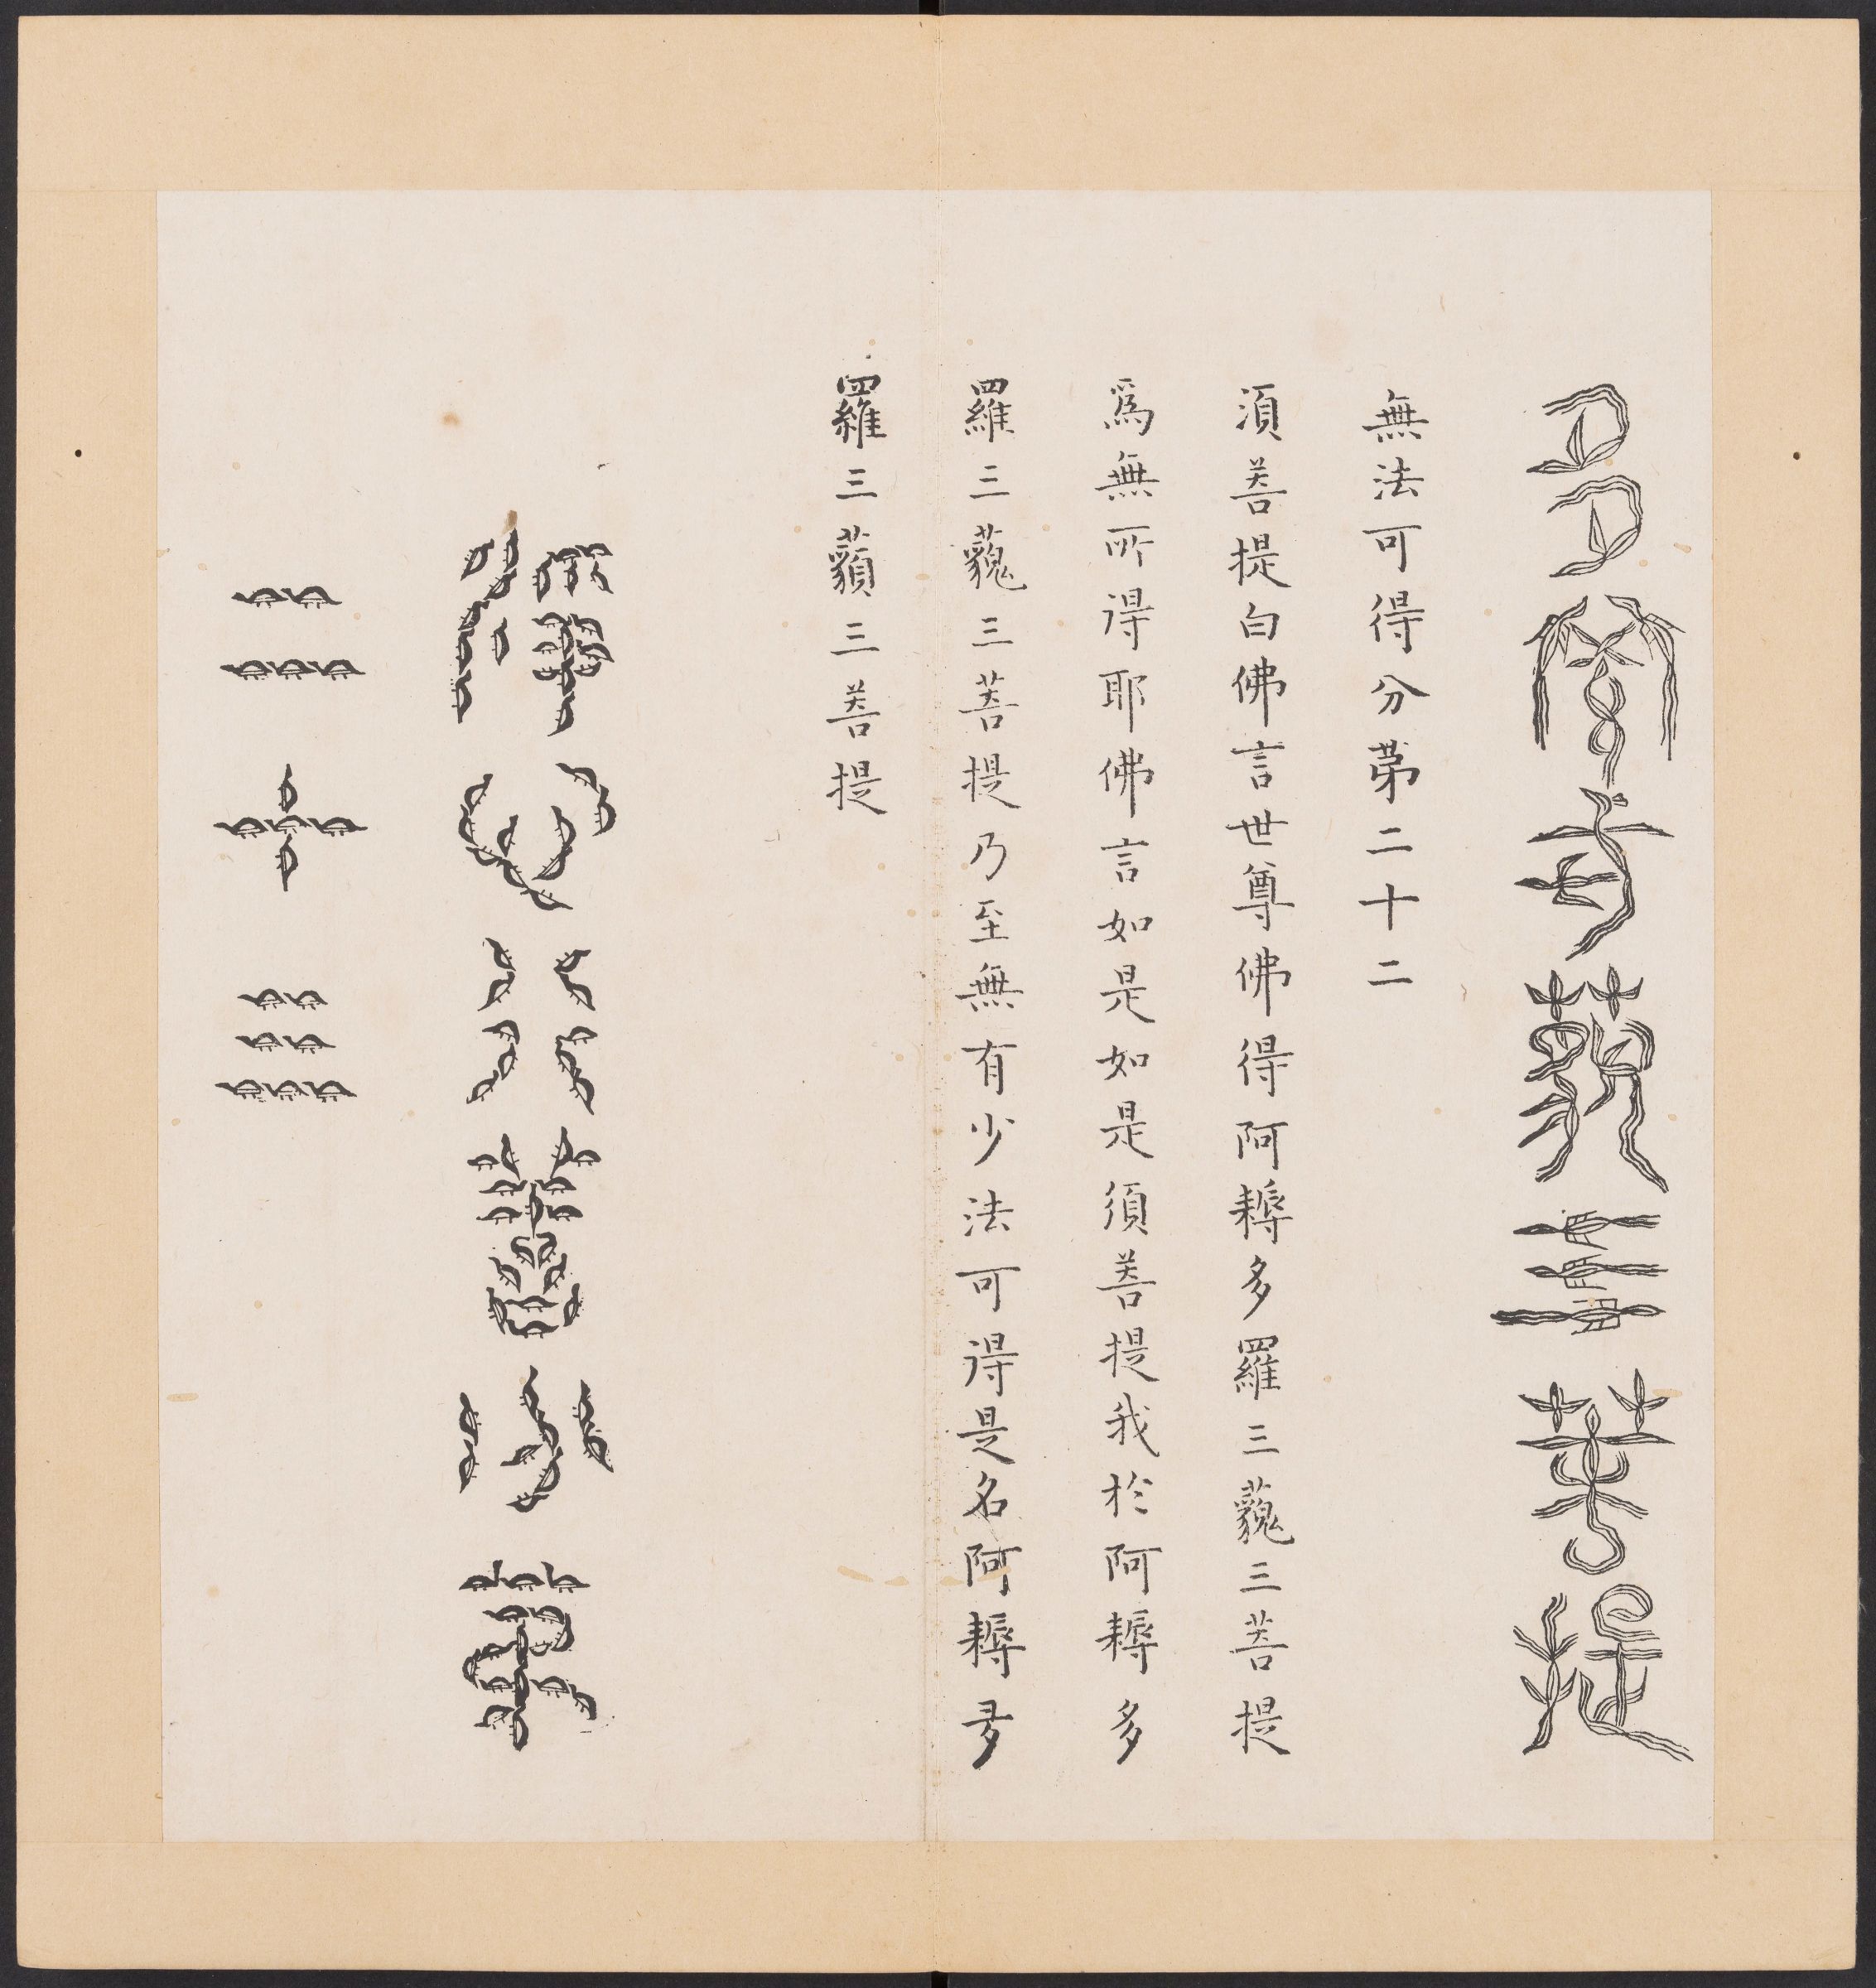 多羅三藐三菩提
無法可得分第二十二
須菩提白佛言世尊佛得阿耨多羅三藐三菩提
爲無所得耶佛言如是如是須菩提我於阿耨多
羅三藐三菩提乃至無有少法可得是名阿耨多
羅三藐三菩提
淨心行善分第
二十三